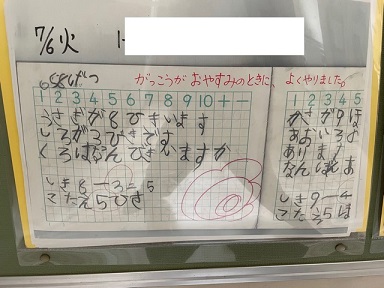 7/6火
がっこうが おやすみのときに、よくやりました。
1 2 3 4 5 6 7 8 9 10 + −
うさぎが8ひきいます
しろが3びきです
くろはなんびきいますか
しき8−3=5
こたえ5ひき
1 2 3 4 5
かさが9ほ
あおいろ
ありま
なんぼん
しき9−4
こたえ5ほ